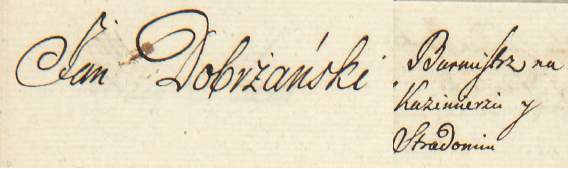 Jan Dobrżański
Burmistrz na
Kazimierzu y
Stradomiu